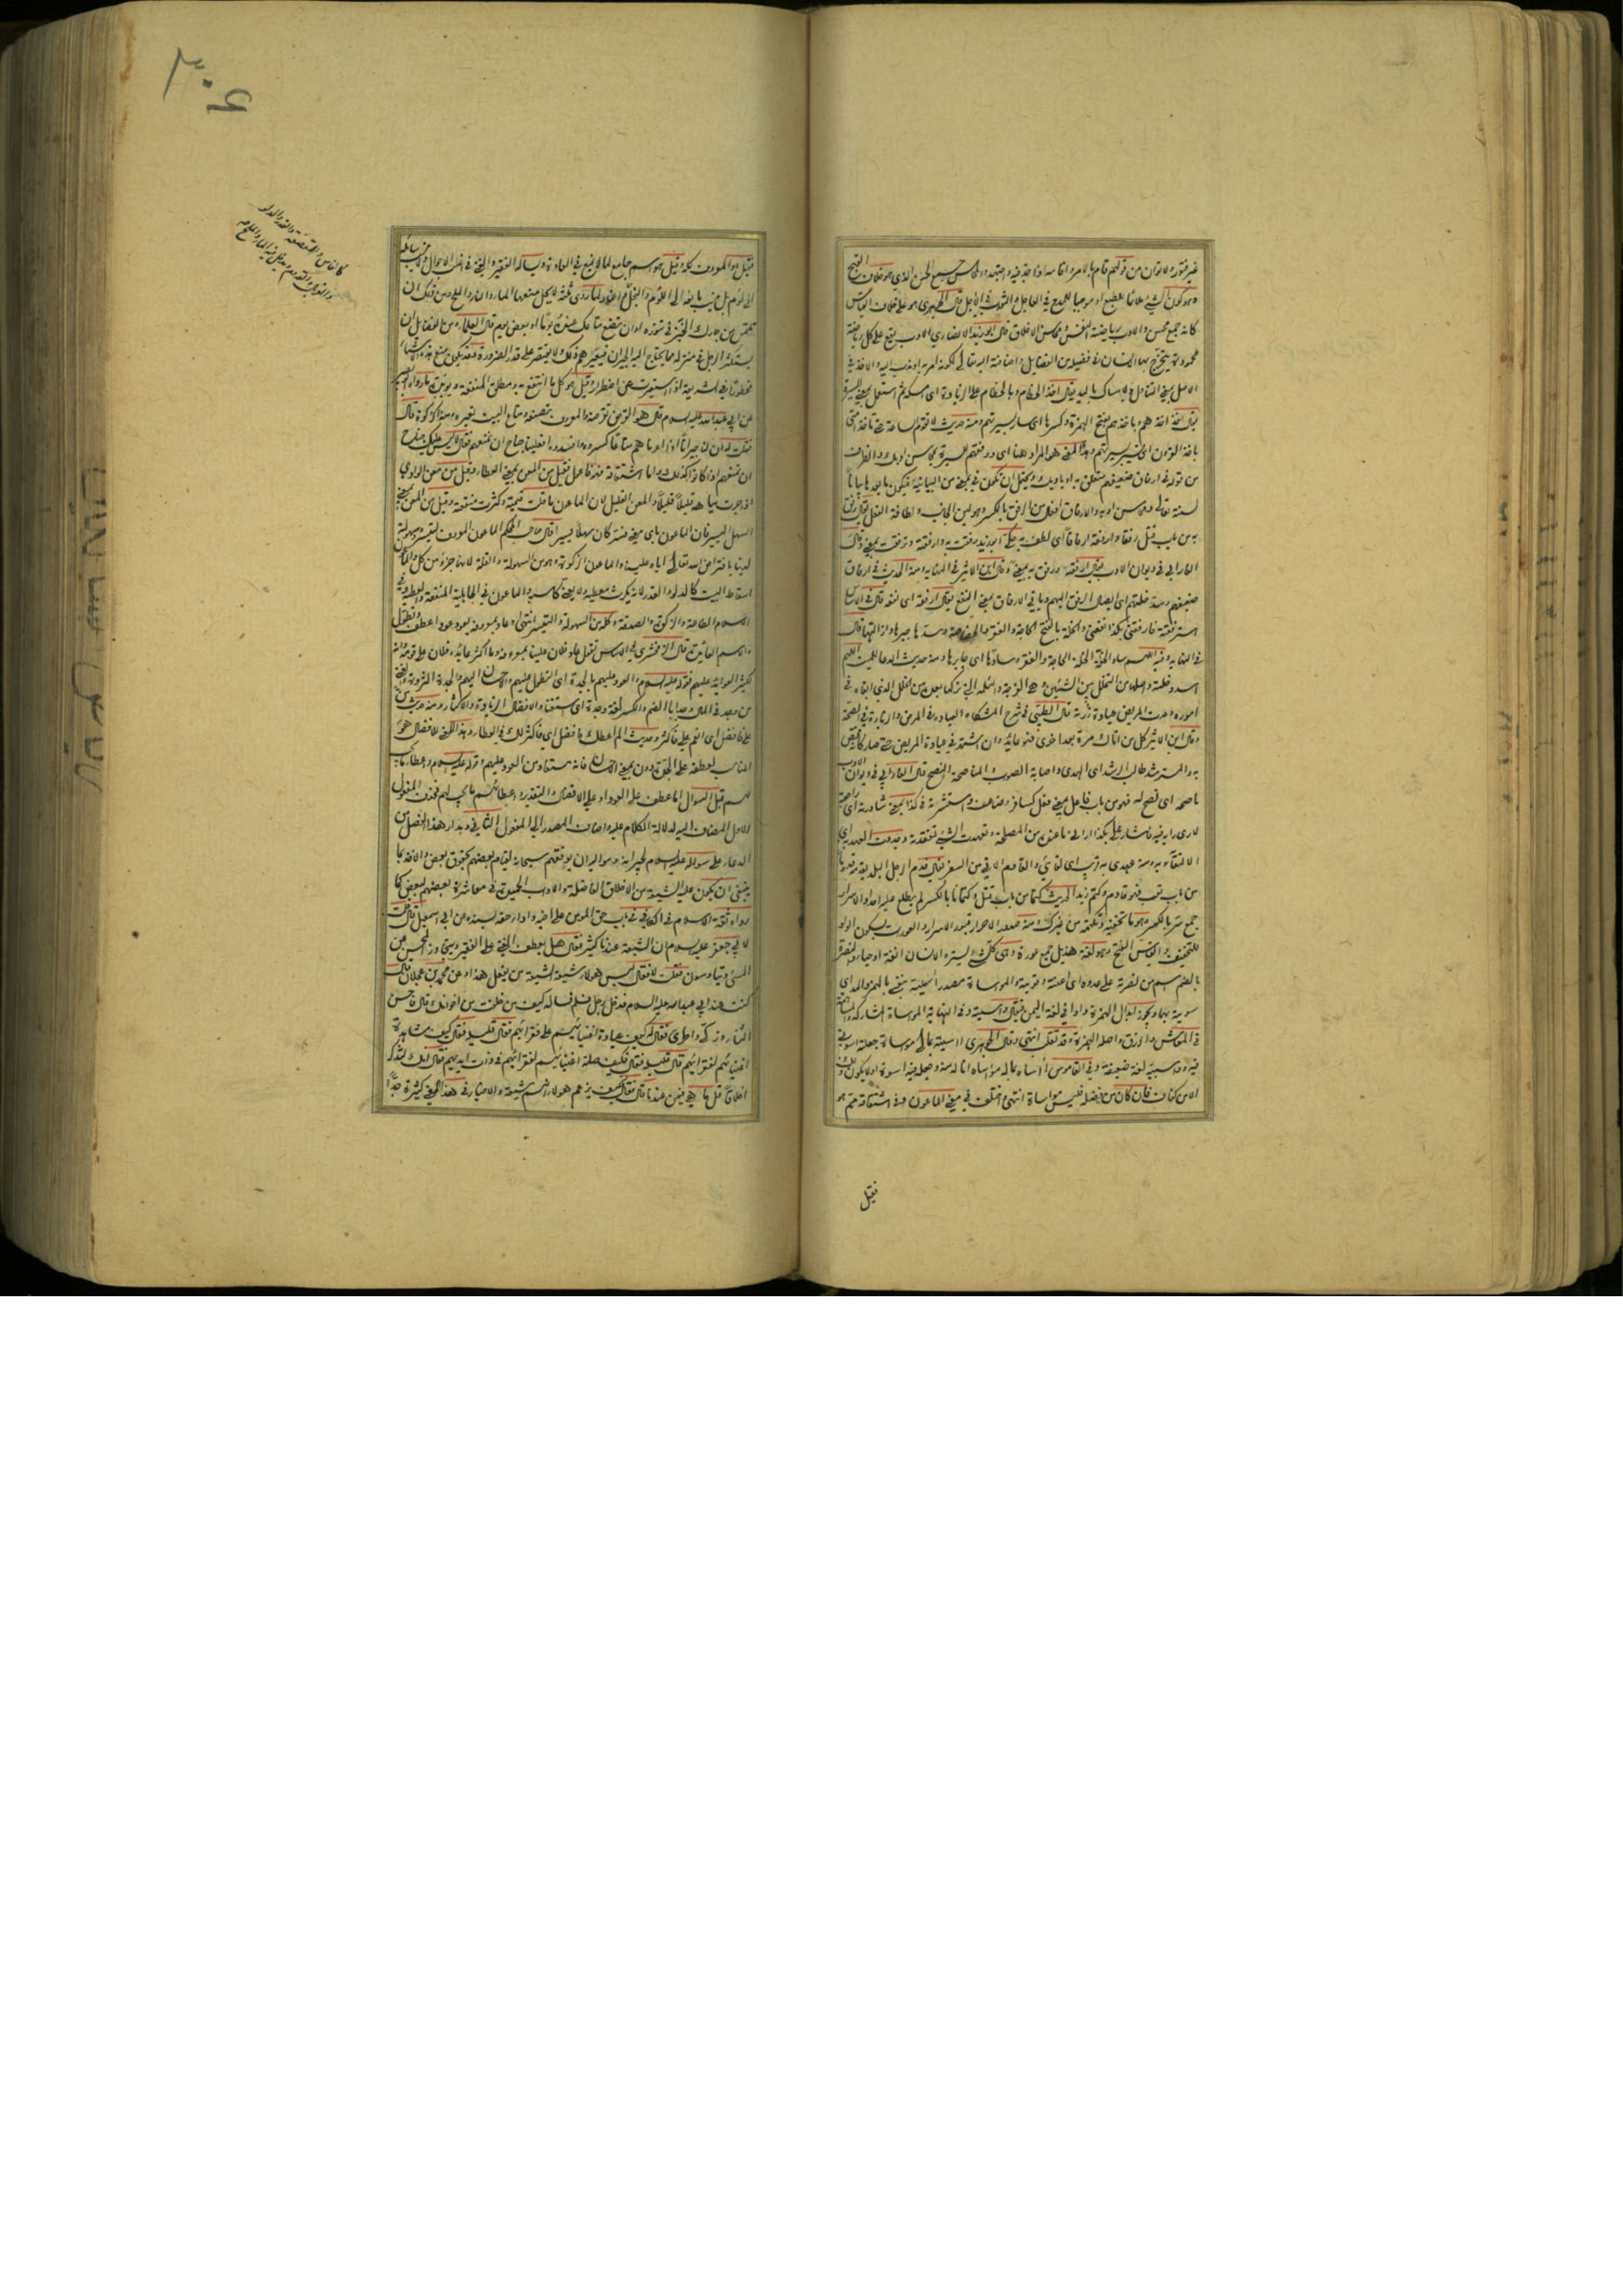 غير فتور ولا توان من قولهم قام بالامر واقامه اذا جد فيه واجتهد والمحاسن جمع الحسن الذي هو خلاف القبح
وهو كون الشيء ملائما للطبع او موجبا للمدح في العاجل والثواب في الآجل قال الجوهري هو على خلاف القياس
كانه جمع محسن والادب رياضة النفس ومحاسن الاخلاق قال ابو زيد الانصاري الادب يقع على كل رياضة
محمودة يتخرج بها الانسان في فضيلة من الفضايل واضافته اليه تعالى لكونه امر به او ندب اليه والاخذ في
الاصل بمعنى التناول والامساك باليد يقال اخذ الخطام وبالخطام على الزيادة اى امسكه ثم استعمل بمعنى السيرة
يقال اخذ اخذهم واخذهم بفتح الهمزة وكسرها اى سار بسيرتهم ومنه حديث لا تقوم الساعة حتى تاخذ امتى
باخذ القرون اى تسير بسيرتهم وهذا المعنى هو المراد هنا اى ووفقهم للسيرة بمحاسن ادبك والظرف
من قوله في ارفاق ضعيفهم متعلق به او بادبك ويحتمل ان تكون في بمعنى من البيانية فيكون ما بعدها بيانا
لسنته تعالى ومحاسن ادبه والارفاق افعال من الرفق بالكسر وهو لين الجانب ولطافة الفعل يقال رفق
به من باب قتل رفقا وارفقته ارفاقا اى لطف به حكى ابو زيد رفقت به وارفقته وترفقت بمعنى وقال
الفارابي في ديوان الادب يقال ارفقته ورفق به بمعنى وقال ابن الاثير في النهاية ومنه الحديث في ارفاق
ضعيفهم وسد خلتهم اى ايصال الرفق اليهم وياتي الارفاق بمعنى النفع يقال ارفقه اى نفعه قال في الاساس
استرفقته فارفقني بكذا نفعني والخلة بالفتح الحاجة والفقر والخصاصة وسدها جبرها وازالتها قال
في النهاية وفيه اللهم ساد الخلة الخلة الحاجة والفقر وسادها اى جابرها ومنه حديث الدعا للميت اللهم
اسدد خلته واصلها من التخلل بين الشيئين وهي الفرجة والثلمة التي تركها بعده من الخلل الذي ابقاه في
اموره وعدت المريض عيادة زرته قال الطيبي في شرح المشكاة العيادة في المرض والزيارة في الصحة
وقال ابن الاثير كل من اتاك مرة بعد اخرى فهو عايد وان اشتهر في عيادة المريض حتى صار كانه مختص
به والمسترشد طالب الرشد اى الهدى واصابة الصواب والمناصحة النصح قال الفارابي في ديوان الادب
ناصحه اى نصح له فهو من باب فاعل بمعنى فعل كسافر وضاعف واستشرته في كذا بمعنى شاورته اى راجعته
لارى رايه فيه فاشار على بكذا اراني ما عنده من المصلحة وتعهدت الشيء تفقدته وجددت العهد به اى
الالتقاء به ومنه عهدي به قريب اى لقائي والقادم الاتي من السفر يقال قدم الرجل البلد يقدمه قدوما
من باب تعب فهو قادم وكتم زيد الحديث كتما من باب قتل وكتمانا بالكسر لم يطلع عليه احدا والاسرار
جمع سر بالكسر وهو ما تخفيه وتكتمه من غيرك ومنه صدور الاحرار قبور الاسرار والعورات بسكون الواو
للتخفيف والقياس الفتح وهو لغة هذيل جمع عورة وهي كل شيء يستره الانسان انفة او حياء والنصرة
بالضم اسم من نصرته على عدوه اى اعنته وقويته والمواساة مصدر آسيته بنفسي بالهمز والمد اى
سويته بها ويجوز ابدال الهمزة واوا في لغة اليمن فيقال واسيته وفي النهاية المواساة المشاركة والمساهمة
في المعاش والرزق واصله الهمزة وقد تقلب انتهى وقال الجوهري آسيته بمالى مواساة جعلته اسوتي
فيه وواسيته لغة ضعيفة وفي القاموس آساه بماله مواساة اناله منه وجعله فيه اسوة اولا يكون ذلك
الا من كفاف فان كان من فضلة فليس مواساة انتهى واختلف في معنى الماعون وفي اشتقاقه مم هو
فقيل
فقيل هو المعروف كله وقيل هو اسم جامع لما لا يمنع في العادة ويساله الفقير والغني في اغلب الاحوال ولا ينسب سائله
الى لؤم بل ينسب مانعه الى اللؤم والبخل كالفاس والقدر ولما روى ثلثة لا يحل منعها الماء والنار والملح ومن ذلك ان
يلتمس من جارك الخبز في تنوره او ان يضع متاعك عنده يوما او بعض يوم قال العلماء ومن الفضايل ان
يستكثر الرجل في منزله مما يحتاج اليه الجيران فيعيرهم ذلك ولا يقتصر على قدر الضرورة وقد يكون منع هذه الاشياء
محظورا في الشريعة اذا استعيرت عن اضطرار وقيل هو كل ما انتفع به ومطلق المنفعة ويؤيده ما رواه ابو بصير
عن ابي عبد الله عليه السلام قال هو القرض تقرضه والمعروف تصنعه ومتاع البيت تعيره ومنه الزكوة قال
فقلت له ان لنا جيرانا اذا اعرناهم متاعا كسروه وافسدوه افعلينا جناح ان نمنعهم فقال لا ليس عليكم جناح
ان تمنعوهم اذا كانوا كذلك واما اشتقاقه فهو فاعول فقيل من المعن بمعنى العطاء وقيل من معن الوادي
اذا جرت مياهه قليلا قليلا والمعن القليل لان الماعون ما قلت قيمته وكثرت منفعته وقيل من المعن بمعنى
السهل اليسير فان الماعون باى معنى فسر كان سهلا يسيرا قال صاحب المحكم الماعون المعروف لتيسره وسهولته
لدينا بافتراض الله تعالى اياه علينا والماعون الزكوة وهو من السهولة والقلة لانها جزء من كل والماعون
اسقاط البيت كالدلو والقدر لانه لا يكرث معطيه ولا يعنى كاسبه والماعون في الجاهلية المنفعة والعطية وفي
الاسلام الطاعة والزكوة والصدقة وكله من السهولة والتيسر انتهى وعاد بمعروفه يعود عودا عطف وتطول
والاسم العائدة قال الزمخشري في الاساس تقول عاد فلان علينا بمعروفه وما اكثر عائدة فلان على قومه وانه
لكثير العوايد عليهم قوله عليه السلام والعود عليهم بالجدة اى التطول عليهم والاحسان اليهم والجدة الثروة والغنى
من وجد في المال وجدا بالضم والكسر لغة وجدة اى استغنى والافضال الزيادة والاكثار ومنه حديث من
على فافضل اى انعم على فاكثر وحديث الم اعطك فافضل اى فاكثر لك في العطاء وهذا المعنى للافضال هو
المناسب لعطفه على الجدة دون بمعنى الاحسان فانه مستفاد من العود عليهم وقوله عليه السلام واعطاء ما يجب
لهم قبل السؤال اما عطف على العود او على الافضال والتقدير واعطائهم ما يجب لهم فحذف المفعول
الاول المضاف اليه لدلالة الكلام عليه واضاف المصدر الى المفعول الثاني ومدار هذا الفصل من
الدعاء على سؤاله عليه السلام لجيرانه ومواليه ان يوفقهم سبحانه لقيام بعضهم بحقوق بعض والاخذ بما
ينبغي ان يكون عليه الشيعة من الاخلاق الفاضلة والاداب الجميلة في معاشرة بعضهم لبعض كما
رواه ثقة الاسلام في الكافي في باب حق المؤمن على اخيه واداء حقه بسنده عن ابي اسمعيل قال قلت
لابي جعفر عليه السلام ان الشيعة عندنا كثير فقال هل يعطف الغني على الفقير ويتجاوز المحسن عن
المسئ ويتواسون فقلت لا فقال ليس هؤلاء شيعة الشيعة من يفعل هذا وعن محمد بن عجلان قال
كنت عند ابي عبد الله عليه السلام فدخل رجل فسلم فساله كيف من خلفت من اخوانك قال فاحسن
الثناء وزكى واطرى فقال له كيف عيادة اغنيائهم على فقرائهم فقال قليلة فقال كيف مشاهدة
اغنيائهم لفقرائهم قال قليلة فقال فكيف صلة اغنيائهم لفقرائهم في ذات ايديهم فقال انك لتذكر
اخلاقا قل ما هي فيمن عندنا قال فقال كيف يزعم هؤلاء انهم شيعة والاخبار في هذا المعنى كثيرة جدا
كالفاس والقصعة والقدر والدلو
٣٠۶